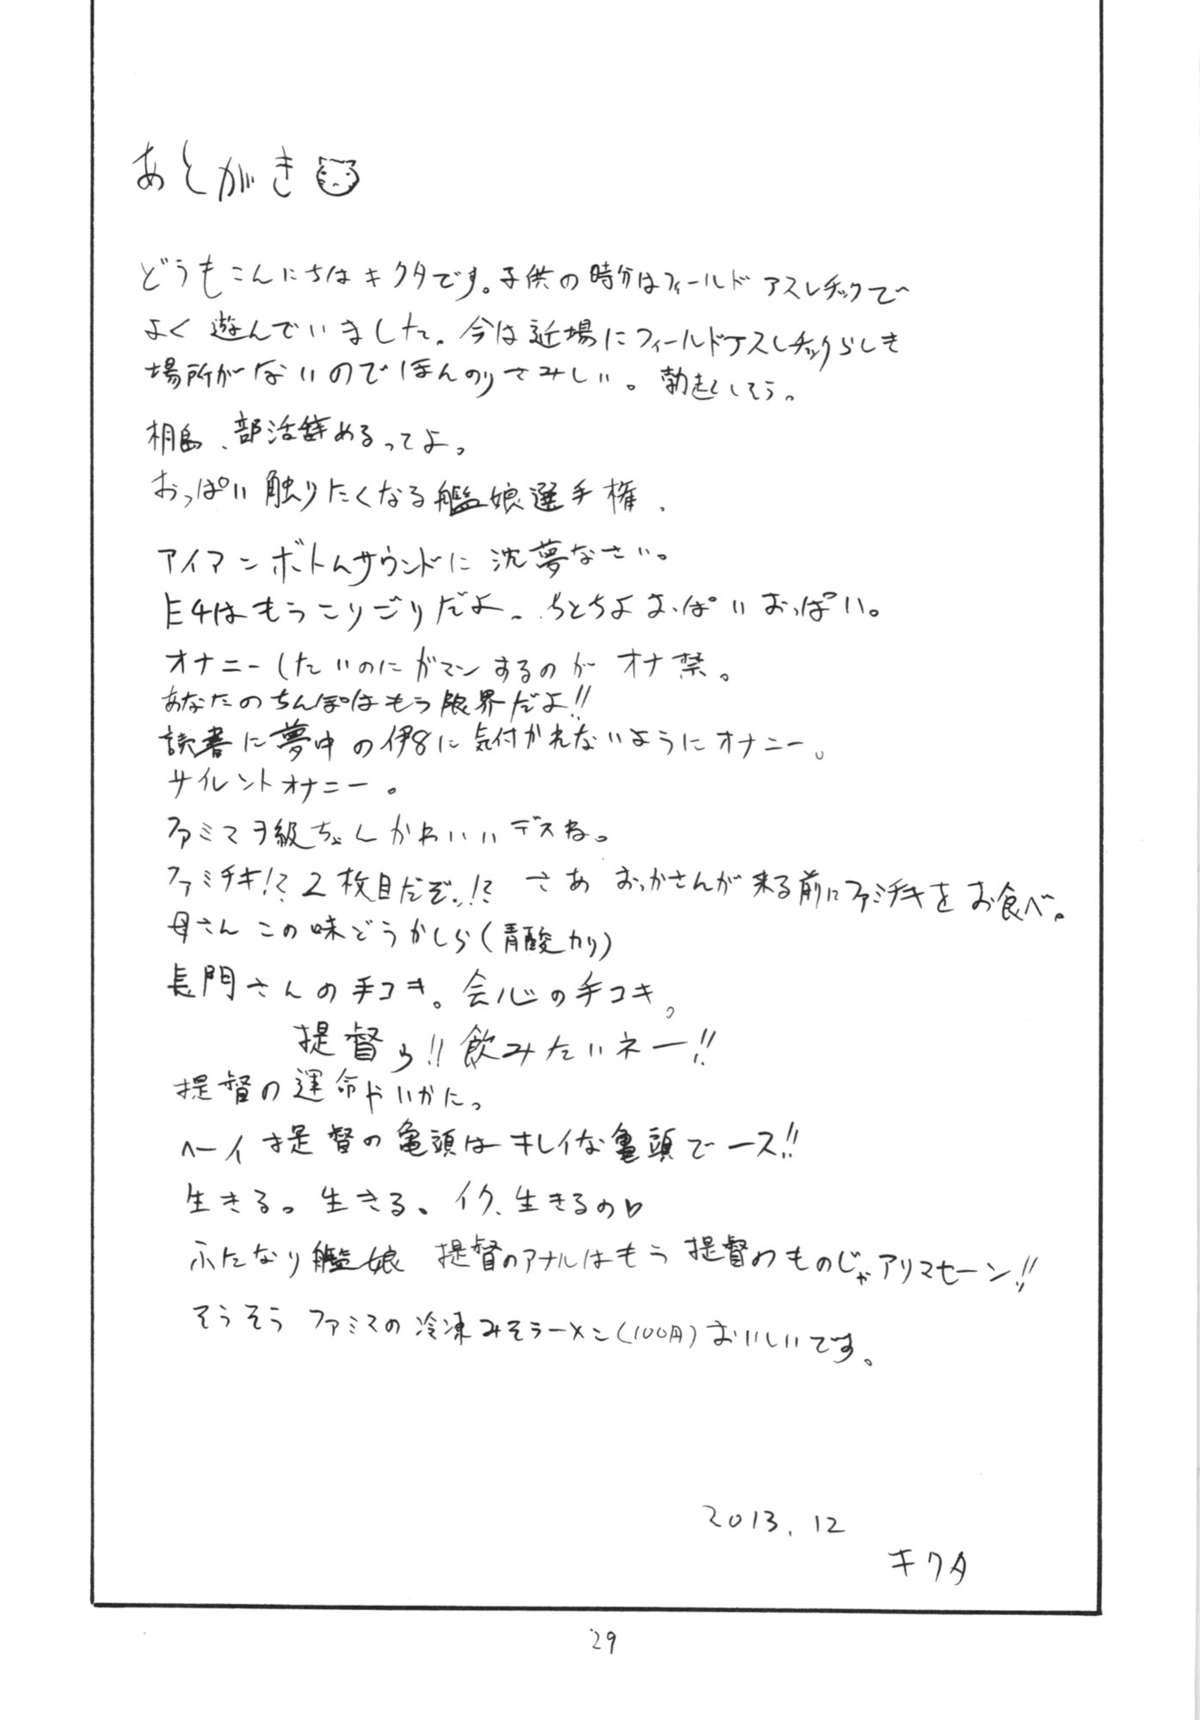 あとがき
どうもこんにちはキクタです。子供の時分はフィールドアスレチックで
よく遊んでいました。今は近場にフィールドアスレチックらしき
場所がないのでほんのりさみしい。勃起しそう。
桐島、部活辞めるってよ。
おっぱい触りたくなる艦娘選手権。
アイアンボトムサウンドに沈夢なさい。
E4はもうこりごりだよ〜。ちとちよおっぱいおっぱい。
オナニーしたいのにガマンするのがオナ禁。
あなたのちんぽはもう限界だよ!!
読書に夢中の伊8に気付かれないようにオナニー。
サイレントオナニー。
ファミマヲ級ちゃんかわいいデスね。
ファミチキ!?2枚目だぞ!?さあおっかさんが来る前にファミチキをお食べ。
母さんこの味どうかしら(青酸カリ)
長門さんの手コキ。会心の手コキ。
提督ゥ!!飲みたいネー!!
提督の運命やいかに。
ヘーイ提督の亀頭はキレイな亀頭でース!!
生きる。生きる。イク、生きるの♡
ふたなり艦娘 提督のアナルはもう提督のものじゃアリマセーン!!
そうそうファミマの冷凍みそラーメン(100円)おいしいです。
2013.12
キクタ
29